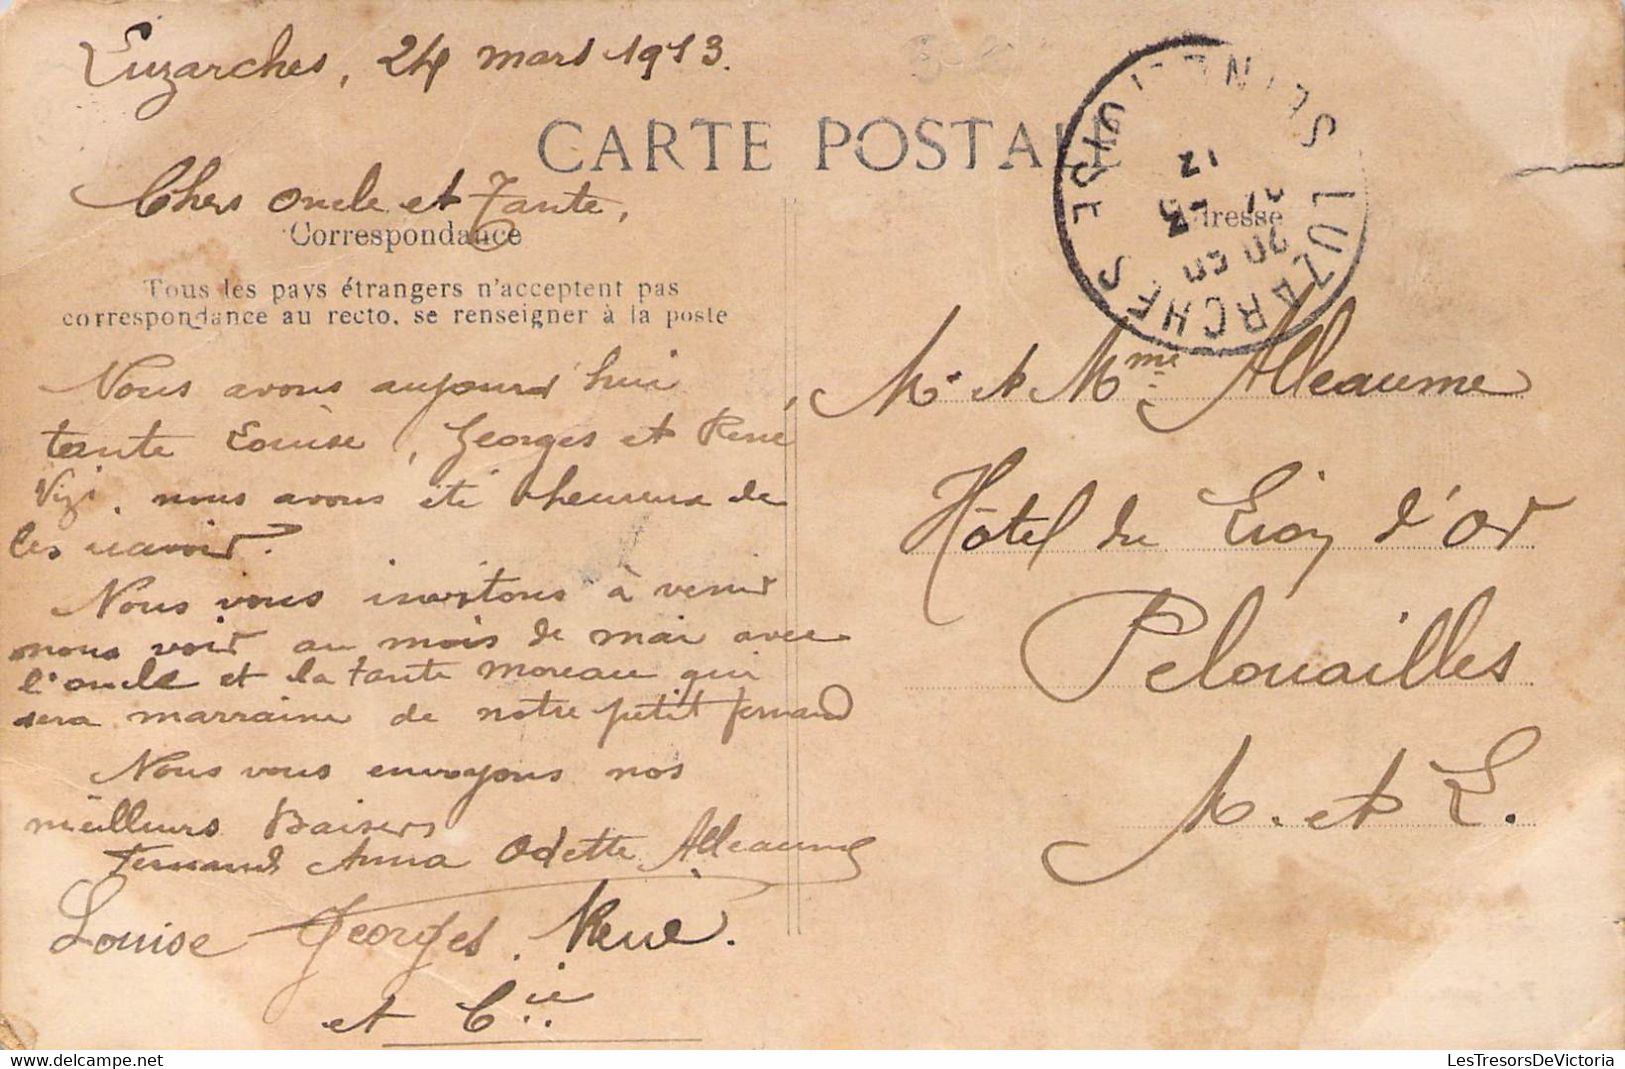 Luzarches, 24 mars 1913.
CARTE POSTALE
Chers Oncle et Tante,
Correspondance
Tous les pays étrangers n'acceptent pas
correspondance au recto, se renseigner à la poste
Nous avons aujourd'hui
tante Louise, Georges et René
nous avons été heureux de
les
Nous vous invitons à venir
nous voir au mois de mai avec
l'oncle et la tante moreau qui
sera marraine de notre petit fernand
Nous vous envoyons nos
meilleurs Baisers
Fernand Anna Odette Alleaume
Louise Georges. René.
et Cie
LUZARCHES SEINE-ET-OISE
Adresse
Mr et Mme Alleaume
Hôtel du Lion d'Or
Pelouailles
M. et L.
delcampe.net
LesTresorsDeVictoria